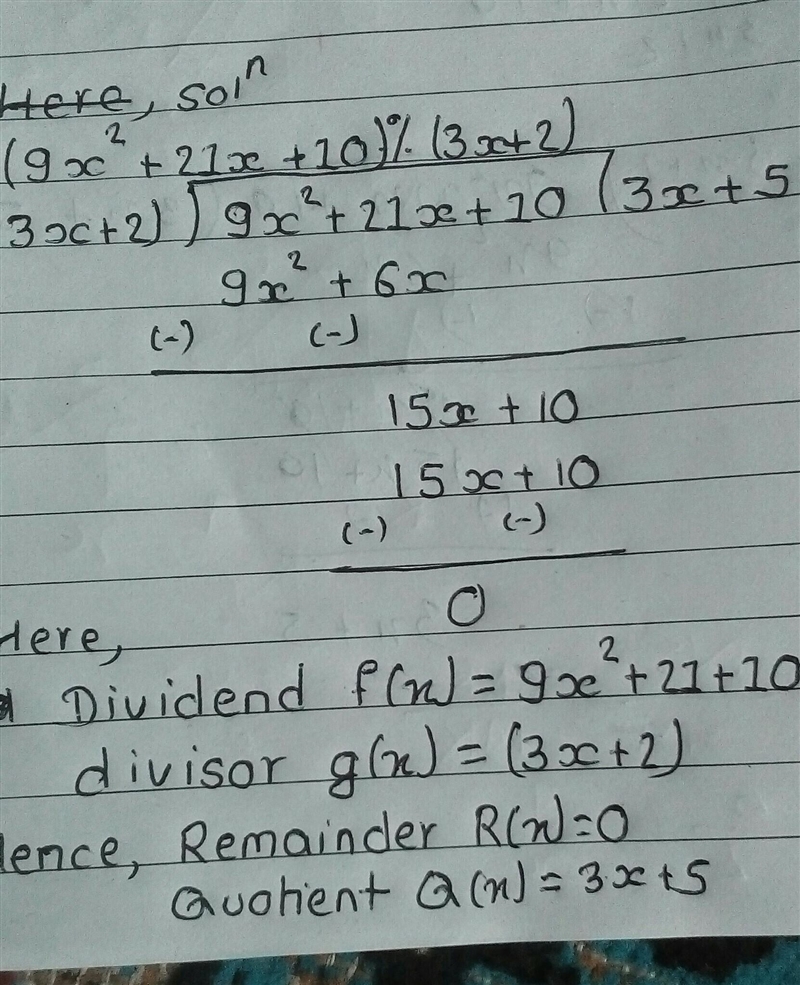 Here, solⁿ
(9x² + 21x + 10)% (3x+2)
3x+2) 9x² + 21x + 10 (3x + 5
9x² + 6x
(-) (-)
15x + 10
15x + 10
(-) (-)
0
Here,
Dividend f(x) = 9x² + 21 + 10
divisor g(x) = (3x+2)
Hence, Remainder R(x) = 0
Quotient Q(x) = 3x + 5